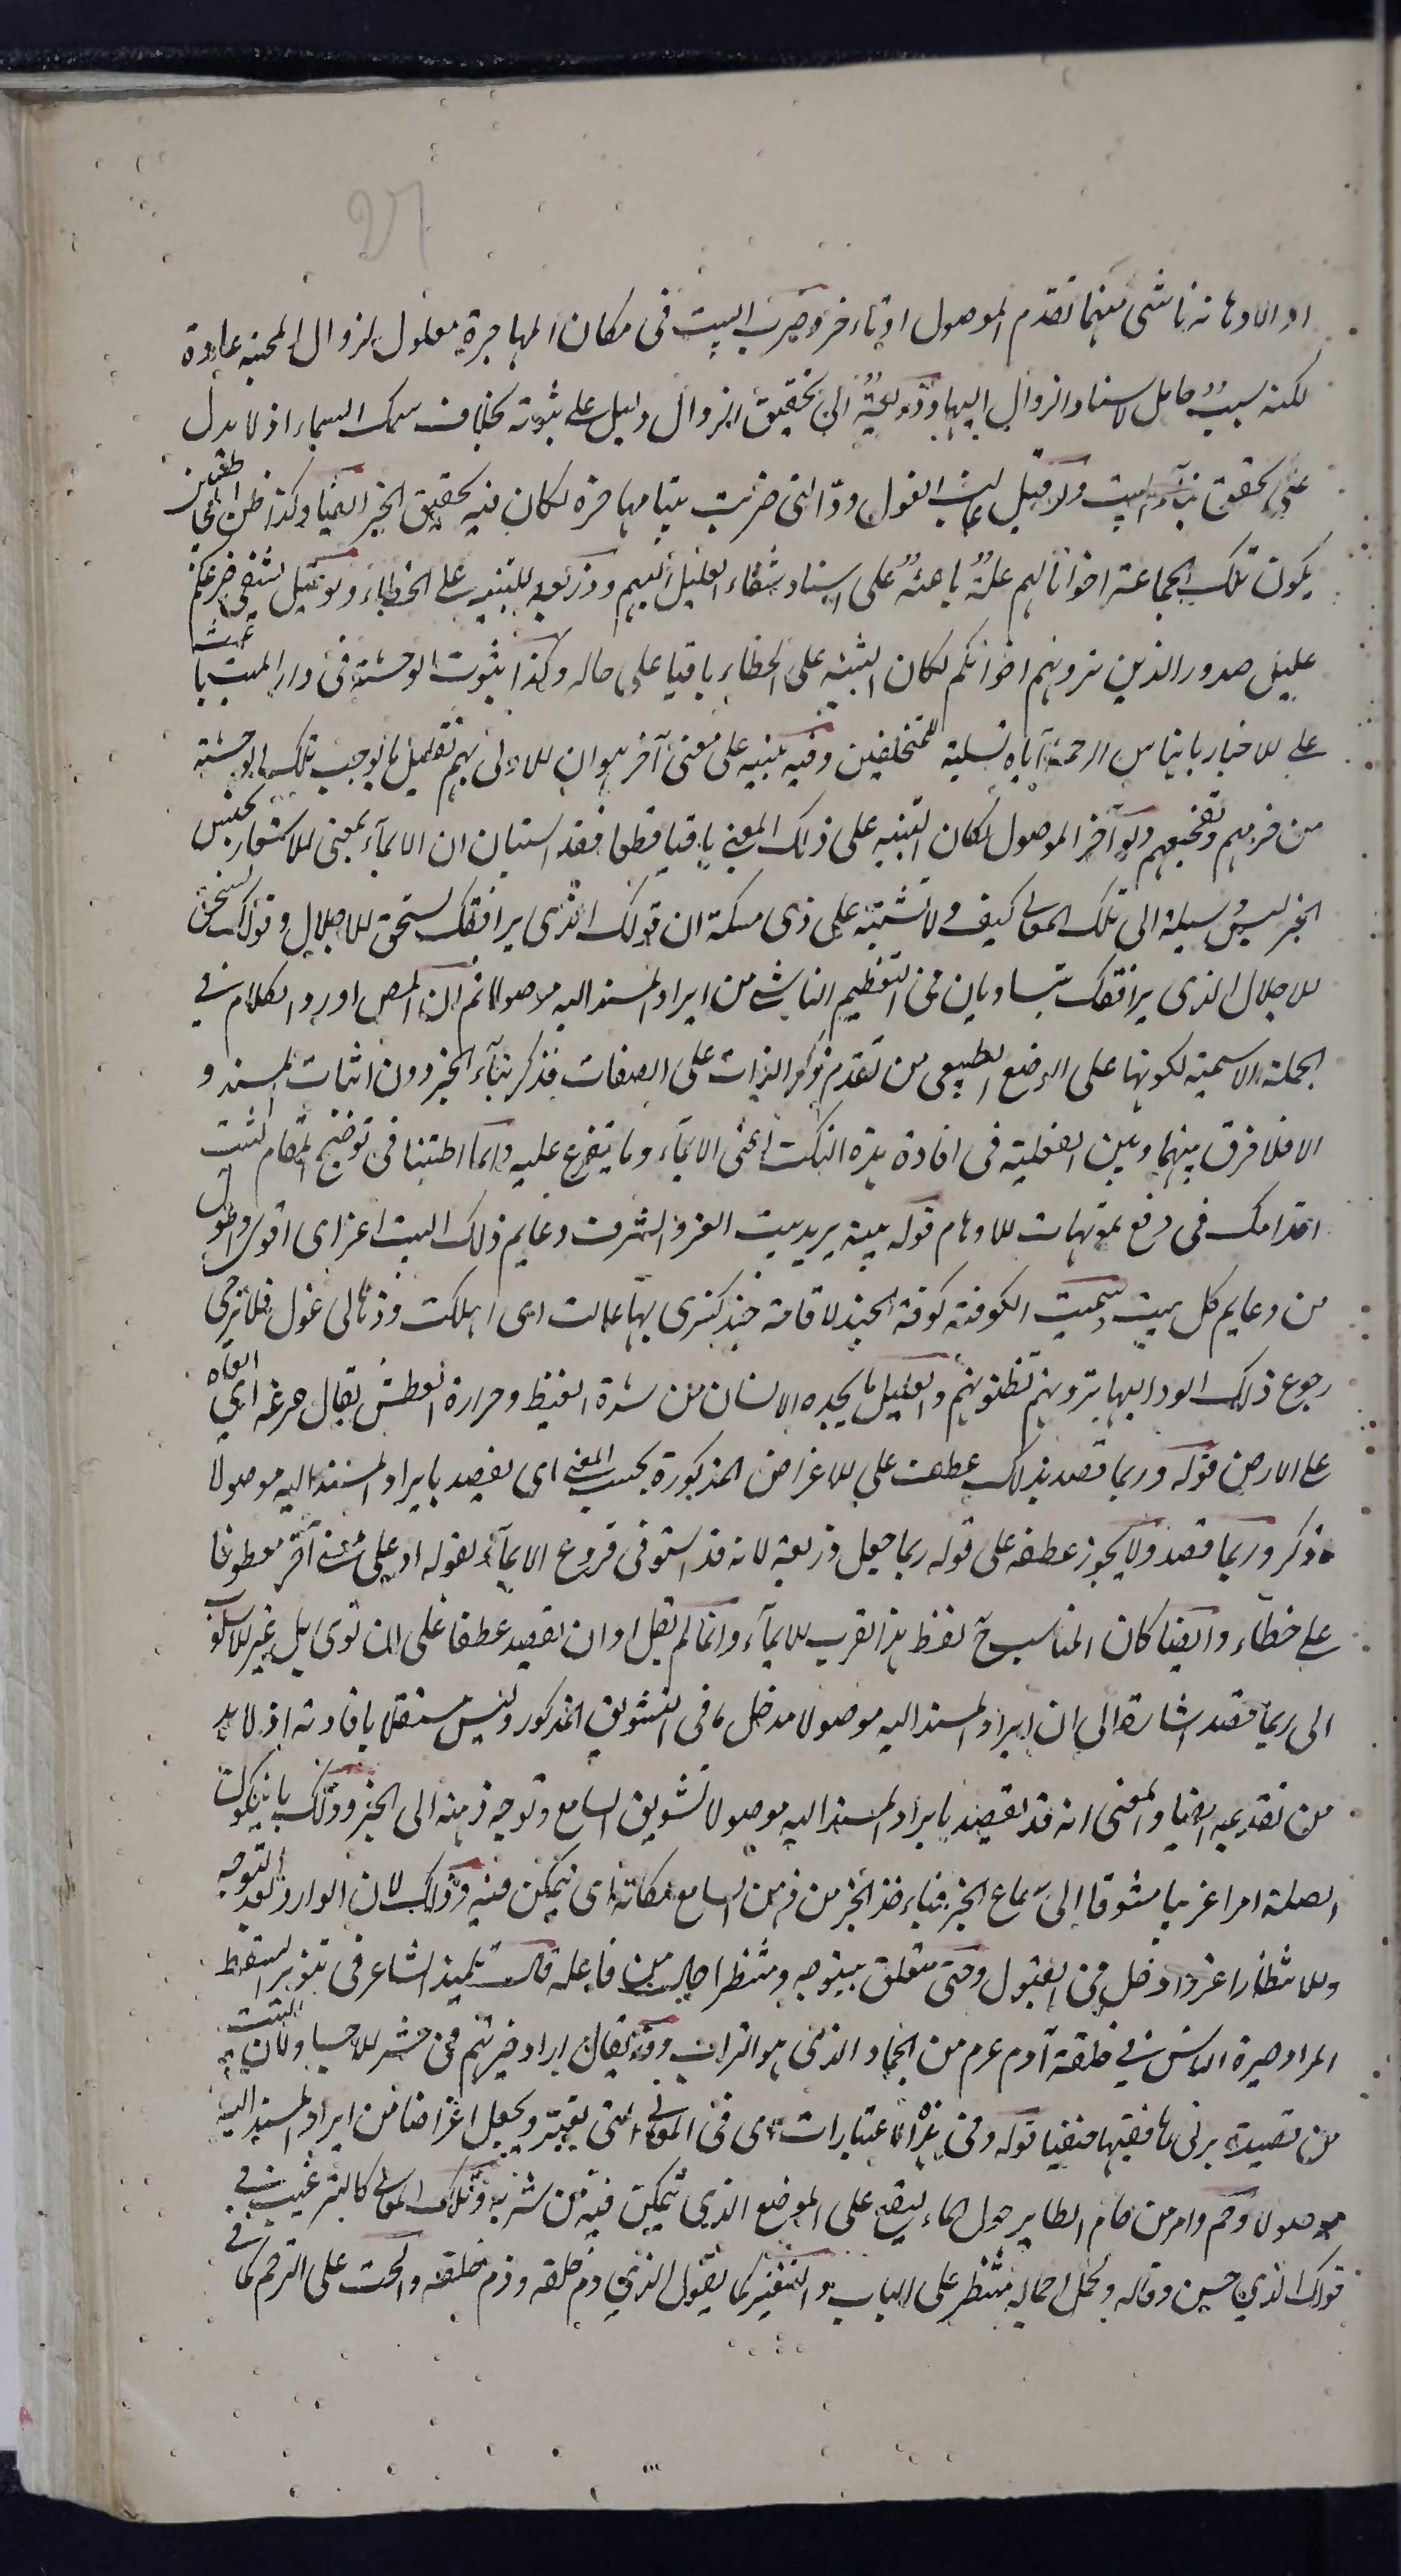 او الاهانة ناشئ منهما تقدم الموصول او تاخر وضرب البيت فى مكان المهاجرة معلول لزوال المحبة عادة
لكنه سبب حامل لاسناد الزوال اليها وذريعة الى تحقيق الزوال دليل على ثبوته بخلاف سمك السماء اذ لا يدل
على تحقق بناء البيت ولو قيل غالت الغول ودا التى ضربت بيتا مهاجرة لكان فيه تحقيق الخبر ايضا وكذا ظن المخاطبين
يكون تلك الجماعة اخوانا لهم علة باعثة على اسناد شفاء الغليل اليهم وذريعة للتنبيه على الخطاء ولو قيل يشفى صرعكم
غليل صدور الذين ترونهم اخوانكم لكان التنبيه على الخطاء باقيا على حاله وكذا ثبوت الوحشة فى دار الميت باعث
على للاخبار بايناس الرحمة اياه تسلية للمتخلفين وفيه تنبيه على معنى آخر هو ان للاولى بهم تقليل ما يوجب تلك الوحشة
من فزعهم وتفجعهم ولو آخر الموصول لكان التنبيه على ذلك المعنى باقيا قطعا فقد استبان ان الايماء بمعنى للاشعار بجنس
الخبر ليس وسيلة الى تلك المعانى كيف ولا تشتبه على ذى مسكة ان قولك الذى يرافقك يستحق للاجلال وقولك يستحق
للاجلال الذى يرافقك يتساويان فى التعظيم الناشى من ايراد المسند اليه موصولا ثم ان المص اورد الكلام فى
الجملة الاسمية لكونها على الوضع الطبيعى من تقدم ذكر الذات على الصفات فذكر بناء الخبر دون اثبات المسند و
الا فلا فرق بينهما وبين الفعلية فى افادة هذه النكت اعنى الايماء وما يتفرع عليه وانما اطنبنا فى توضيح المقام لتثبت
اقدامك فى دفع تمويهات للاوهام قوله بيته يريد بيت العز والشرف ودعايم ذلك البيت اعز اى اقوى واطول
من دعايم كل بيت سميت الكوفة كوفة الجند لاقامة جند كسرى بها غالت اى اهلكت ودها لى غول فلا يرجى
رجوع ذلك الود اليها ترونهم تظنونهم والغليل ما يجده الانسان من شدة الغيظ وحرارة العطش يقال صرعه اى القاه
على الارض قوله وربما قصد بذلك عطف على للاغراض المذكورة بحسب المعنى اى يقصد بايراد المسند اليه موصولا
ما ذكر وربما قصد ولا يجوز عطفه على قوله ربما جعل ذريعة لانه قد استوفى فروع الايماء بقوله او على شئ آخر معطوفا
على خطاء وايضا كان المناسب ح لفظ هذا لقرب للايماء وانما لم يقل او ان يقصد عطفا على ان نوى بل غير للاسلوب
الى ربما قصد اشارة الى ان ايراد المسند اليه موصولا مدخل ما فى التشويق المذكور وليس مستقلا بافادته اذ لا بد
من تقديمه ايضا والمعنى انه قد يقصد بايراد المسند اليه موصولا تشويق السامع وتوجه ذهنه الى الخبر وذلك بان يكون
الصلة امرا غريبا مشوقا الى سماع الخبر فياخذ الخبر من ذهن السامع مكانه اى يتمكن فيه وذلك لان الوارد بعد التوجه
وللانتظار اعز وادخل فى القبول وحتى متعلق بيتوجه ومنتظرا حال من فاعله قال تلميذ الشاعر فى تنوير السقط
المراد حيرة الناس فى خلقة آدم عرم من الجماد الذى هو التراب وقد يقال اراد حيرتهم فى حشر للاجساد لان البيت
من قصيدة يرثى بها فقيها حنفيا قوله وفى هذه الاعتبارات اى فى المعانى التى يعتبر ويجعل اغراضا من ايراد المسند اليه
موصولا وحم وامر من حام الطاير حول الماء ليقع على الموضع الذى يتمكن فيه من شربه وتلك المعانى كالترغيب فى
قولك الذى حسن وقاله ويحمل احماله منتظر على الباب والتنفير كما يقول الذى ذم خلقه وذم خلقه والحث على الترحم كما فى